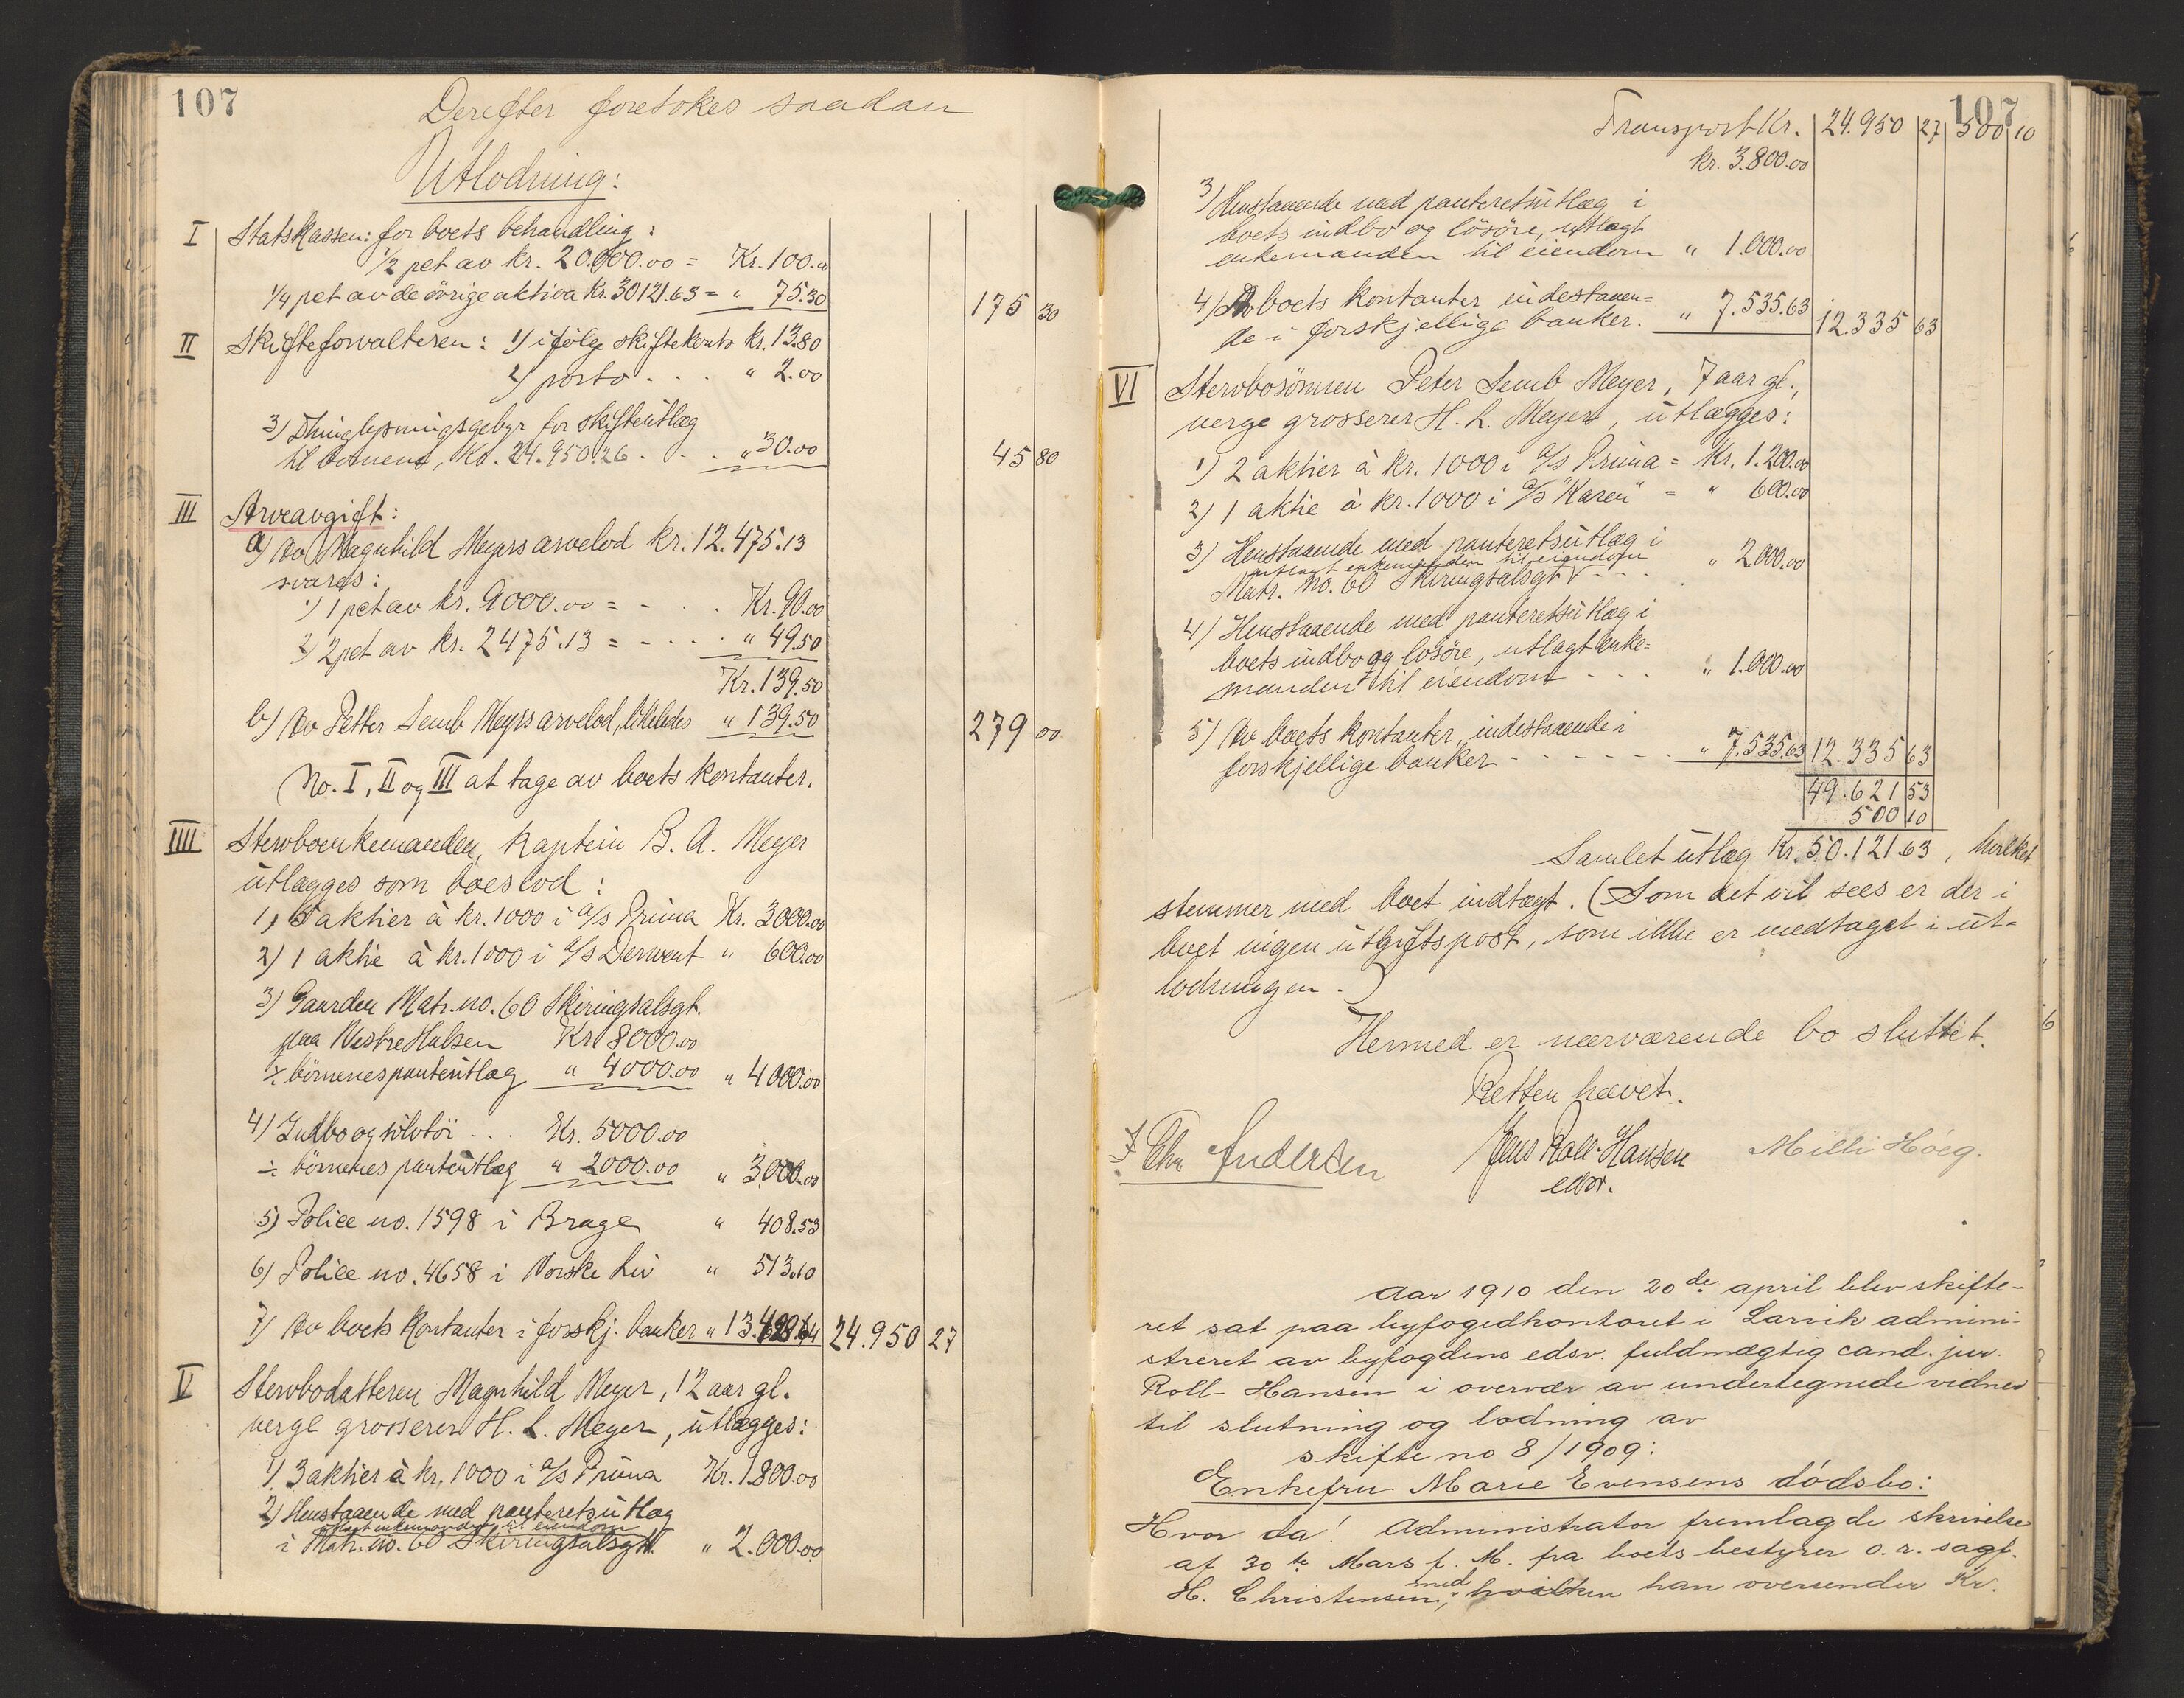 107
Derefter foretokes saadan
Utlodning:
I Statskassen: for boets behandling:
1/2 pct av kr. 20.000.00 = Kr. 100.00
1/4 pct av de övrige aktiva Kr. 30121.63 = " 75.30 175 30
II Skifteforvalteren: 1) ifölge skiftekonto Kr. 13.80
2) porto . . . " 2.00
3) Thinglysningsgebyr for skifteutlæg
til börnene, Kr. 24.950.26 . . . " 30.00 45 80
III Arveavgift:
a) Av Magnhild Meyers arvelod kr. 12.475.13
svares:
1) 1 pct av kr. 9000.00 = - . . Kr. 90.00
2) 2 pct av kr. 2475.13 = - - - - . " 49.50
Kr. 139.50
b) Av Petter Semb Meyers arvelod, likeledes " 139.50 279 00
No. I, II og III at tage av boets kontanter.
IIII Stervboenkemanden, kaptein B. A. Meyer
utlægges som boeslod:
1) 5 aktier à kr. 1000 i a/s Prima Kr. 3000.00
2) 1 aktie à kr. 1000 i a/s Derwent " 600.00
3) Gaarden Matr. no. 60 Skiringsalsgt.
paa Vestre Halsen Kr 8000.00
÷ börnenes panteutlæg " 4000.00 " 4000.00
4) Indbo og sölvtöi . . . Kr. 5000.00
÷ börnenes panteutlæg " 2000.00 " 3.000.00
5) Police no. 1598 i Brage " 408.53
6) Police no. 4658 i Norske Liv " 513.10
7) Av boets kontanter i forskj. banker " 13.428.64 24.950 27
V Stervbodatteren Magnhild Meyer, 12 aar gl.
verge grosserer H. L. Meyer, utlægges:
1) 3 aktier à kr. 1000 i a/s Prima Kr. 1.800.00
2) Henstaaende med panteretsutlæg
utlagt enkemanden til eiendom
i Matr. no. 60 Skiringsalsgt. " 2.000.00
107
Transport Kr. 24.950 27 500 10
kr. 3.800.00
3) Henstaaende med panteretsutlæg i
boets indbo og lösöre, utlagt
enkemanden til eiendom " 1.000.00
4) Av boets kontanter indestaaen=
de i forskjellige banker. " 7.535.63 12.335 63
VI Stervbosönnen Peter Semb Meyer, 7 aar gl.,
verge grosserer H. L. Meyer, utlægges:
1) 2 aktier à kr. 1000 i a/s Prima = Kr. 1.200.00
2) 1 aktie à kr. 1000 i a/s "Karen" = " 600.00
3) Henstaaende med panteretsutlæg i
utlagt enkemanden til eiendom
Matr. no. 60 Skiringsalsgt - - - " 2000.00
4) Henstaaende med panteretsutlæg i
boets indbo og lösöre, utlagt enke=
manden til eiendom - - - " 1.000.00
5) Av boets kontanter, indestaaende i
forskjellige banker - - - - - " 7.535.63 12.335 63
49.621 53
500 10
Samlet utlæg Kr. 50.121.63, hvilket
stemmer med boet indtægt. (Som det vil sees er der i
boet ingen utgiftspost, som ikke er medtaget i ut-
lodningen.)
Hermed er nærværende bo sluttet.
Retten hævet.
F Chr Andersen Jens Roll-Hansen Milli Höeg.
edsv.
Aar 1910 den 20de april blev skifte-
ret sat paa byfogedkontoret i Larvik admini-
streret av byfogdens edsv. fuldmægtig cand. jur.
Roll-Hansen i overvær av undertegnede vidner
til slutning og lodning av
skifte no 8/1909:
Enkefru Marie Evensens dödsbo:
Hvor da! Administrator fremlagde skrivelse
af 30te Mars f. M. fra boets bestyrer o.r. sagf.
H. Christensen, med hvilken han oversender Kr.